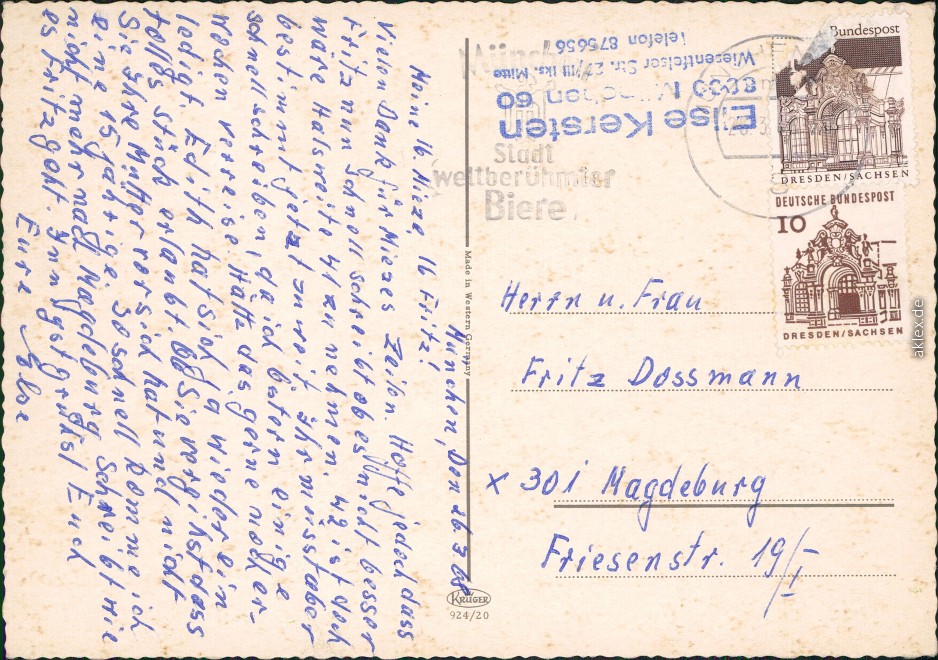 München, Den 26.3.68
Meine lb. Mieze lb Fritz!
Vielen Dank für Miezes Zeilen. Hoffe jedoch dass
Fritz nun schnell schreibt ob es nicht besser
wäre Halsweite 41 zu nehmen. 42 ist doch
bestimmt jetzt zu weit. Ihr müsst aber
schnell schreiben, da ich Ostern einige
Wochen verreise, hätte das gerne vorher
ledigt. Edith hat sich ja wieder ein
tolles Stück erlaubt. Sie vergisst dass
Sie Ihre Mutter
eine 15 jährige. So schnell komme ich
nicht mehr nach Magdeburg. Schreibt wie
es Fritz geht. Innigst grüßt Euch
Eure Else
Made in Western Germany
KRÜGER
924/20
Münch
Stadt
weltberühmter
Biere
Else Kersten
8000 München 60
Wiesentfelser Str. 27/III lks. Mitte
Telefon 875656
Bundespost
DRESDEN/SACHSEN
DEUTSCHE BUNDESPOST
10
DRESDEN/SACHSEN
Herrn u. Frau
Fritz Dossmann
x 301 Magdeburg
Friesenstr. 19/I
aklex.de